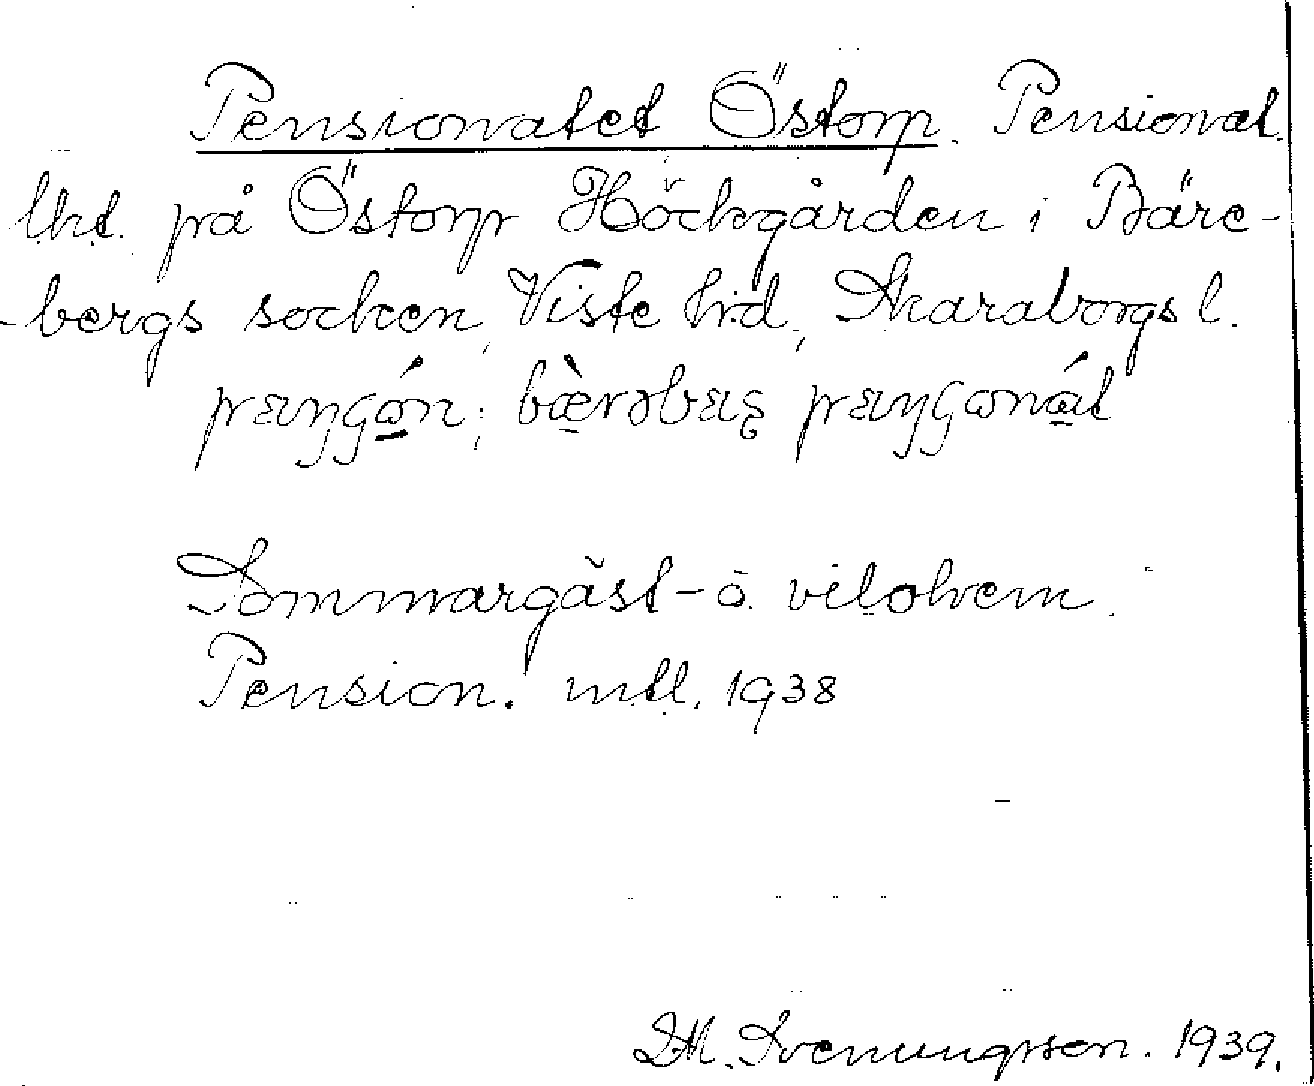 Pensionatet Östorp. Pensionat.
lht. på Östorp Höckgården i Bäre-
-bergs socken, Viste hd, Skaraborgs l.
paŋʃón; bæ̀rəbærj paŋʃonát
Sommargäst- o. vilohem.
Pension. mtl. 1938
M. Svenungsson. 1939.